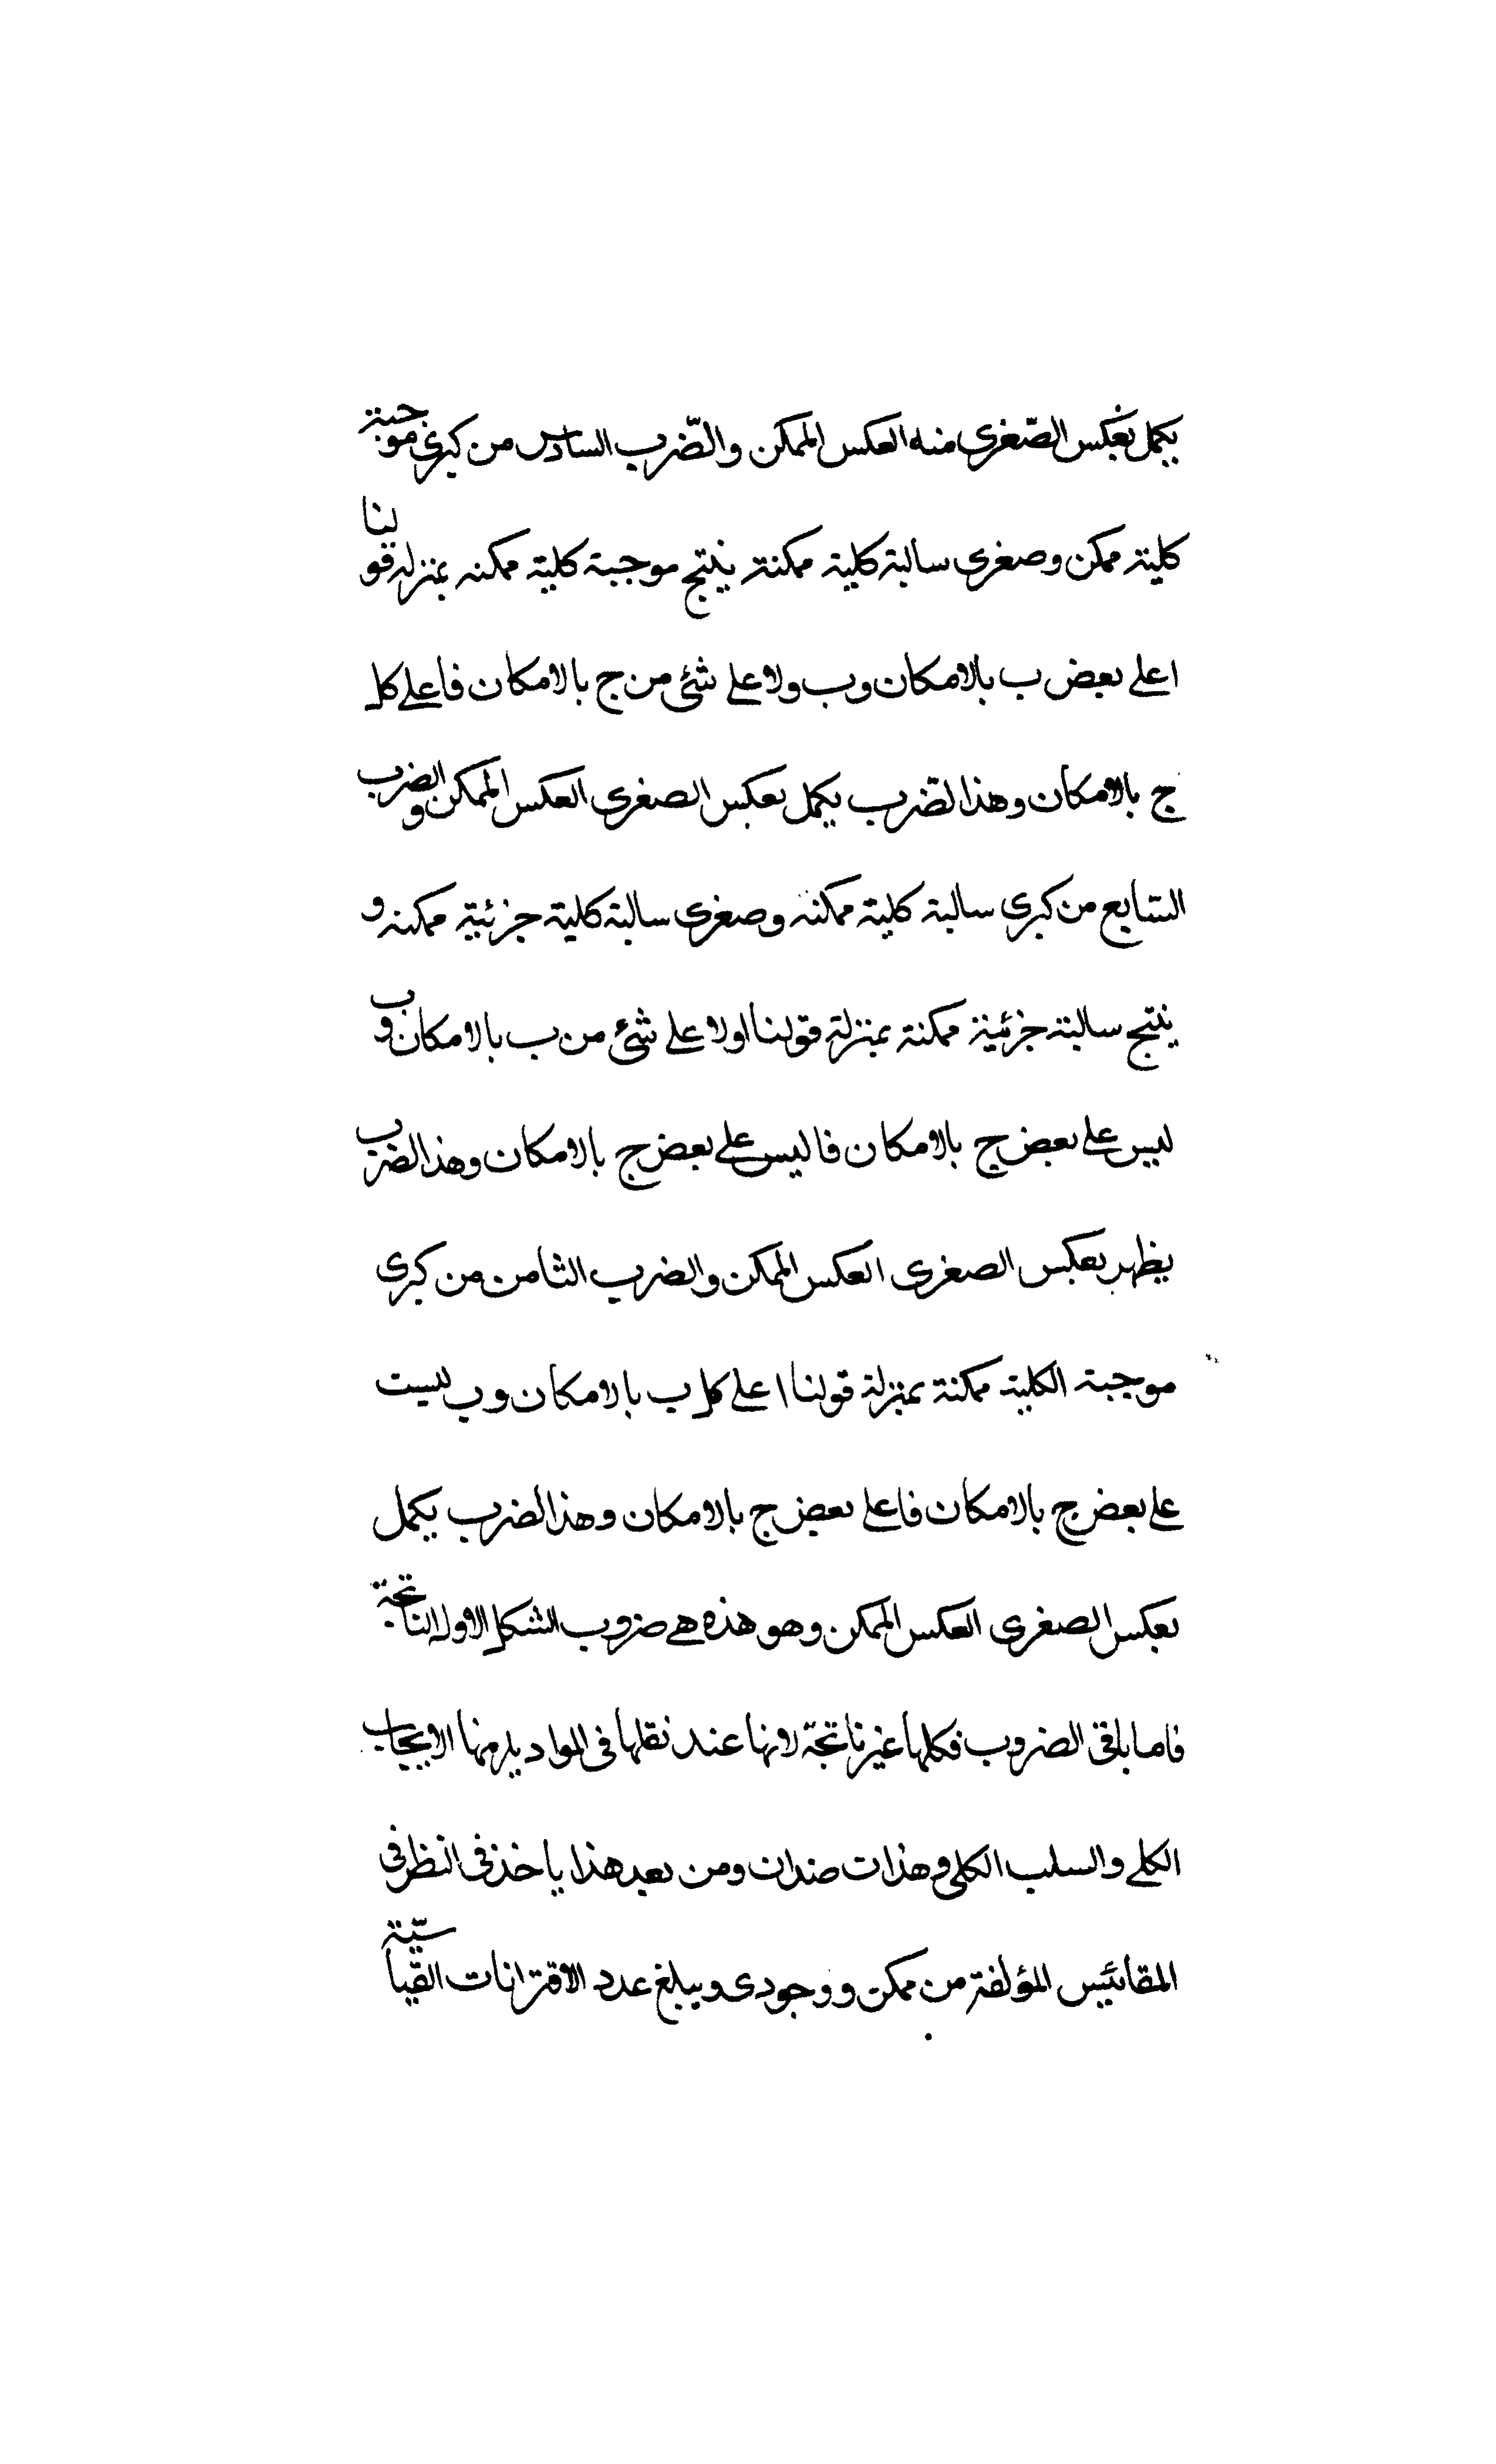 يكمل بعكس الصّغرى منه العكس الممكن والضّرب السادس من كبرى موجبة
كلية ممكن وصغرى سالبة كلية ممكنة ينتج موجبة كلية ممكنه بمنزله قولنا
ا على بعض ب بالامكان وب ولا على شئ من ج بالامكان فا على كل
ج بالامكان وهذا الضّرب يكمل بعكس الصغرى العكس الممكن والضرب
السابع من كبرى سالبة كلية ممكنه وصغرى سالبة كلية جزئية ممكنه و
ينتج سالبة جزئية ممكنة بمنزلة قولنا ا ولا على شئ من ب بالامكان وب
ليس على بعض ج بالامكان فا ليس على بعض ج بالامكان وهذا الضرب
يظهر بعكس الصغرى العكس الممكن والضرب الثامن من كبرى
موجبة الكلية ممكنة بمنزلة قولنا ا على كل ب بالامكان وب ليست
على بعض ج بالامكان فا على بعض ج بالامكان وهذا الضرب يكمل
بعكس الصغرى العكس الممكن وهو هذه هى ضروب الشكل الاول الناتجة
فاما باقى الضروب فكلها غير ناتجة لانها عند نقلها فى المواد يلزمها الايجاب
الكلى والسلب الكلى وهذات ضدان ومن بعد هذا ياخذ فى النظر فى
المقائيس المؤلفة من ممكن ووجودى ويبلغ عدد الاقترانات القياسيّة